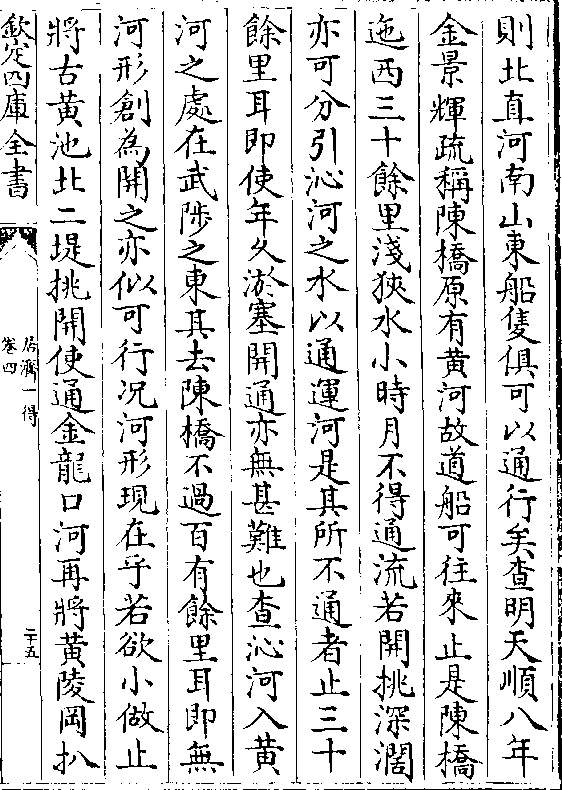 則北直河南山東船隻俱可以通行矣查明天順八年
金景輝疏稱陳橋原有黄河故道船可往來止是陳橋
迤西三十餘里淺狹水小時月不得通流若開挑深濶
亦可分引沁河之水以通運河是其所不通者止三十
餘里耳即使年久淤塞開通亦無甚難也查沁河入黄
河之處在武陟之東其去陳橋不過百有餘里耳即無
河形創為開之亦似可行况河形現在乎若欲小做止
將古黄池北二堤挑開使通金龍口河再將黄陵岡扒
欽定四庫全書
居濟一得
卷四
二十五